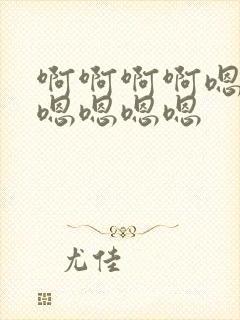 啊啊啊啊嗯
嗯嗯嗯嗯
尤佳